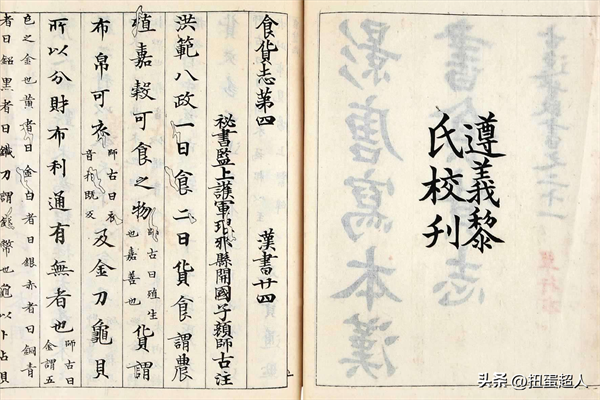 遵義黎
氏校刊
食貨志第四 漢書廿四
祕書監上護軍琅邪縣開國子顏師古注
洪範八政一曰食二曰貨食謂農
殖嘉穀可食之物師古曰殖生也嘉善也貨謂
布帛可衣師古曰衣音於既反及金刀龜貝
所以分財布利通有無者也師古曰金謂五
色之金也黃者曰金白者曰銀赤者曰銅青
者曰鉛黑者曰鐵刀謂錢幣也龜以卜占貝
头条 @扭蛋超人